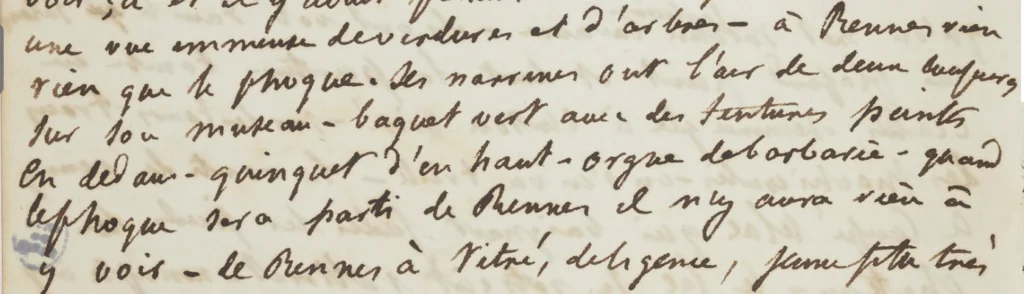 une vue immense de verdures et d'arbres - à Rennes rien
rien que le phoque. Ses narines ont l'air de deux
sur son museau - baquet vert avec des tentures peints
En dedans - quinquet d'en haut - orgue de barbarie - quand
le phoque sera parti de Rennes il n'y aura rien à
y voir - de Rennes à Vitré, deligence, jeune fille très